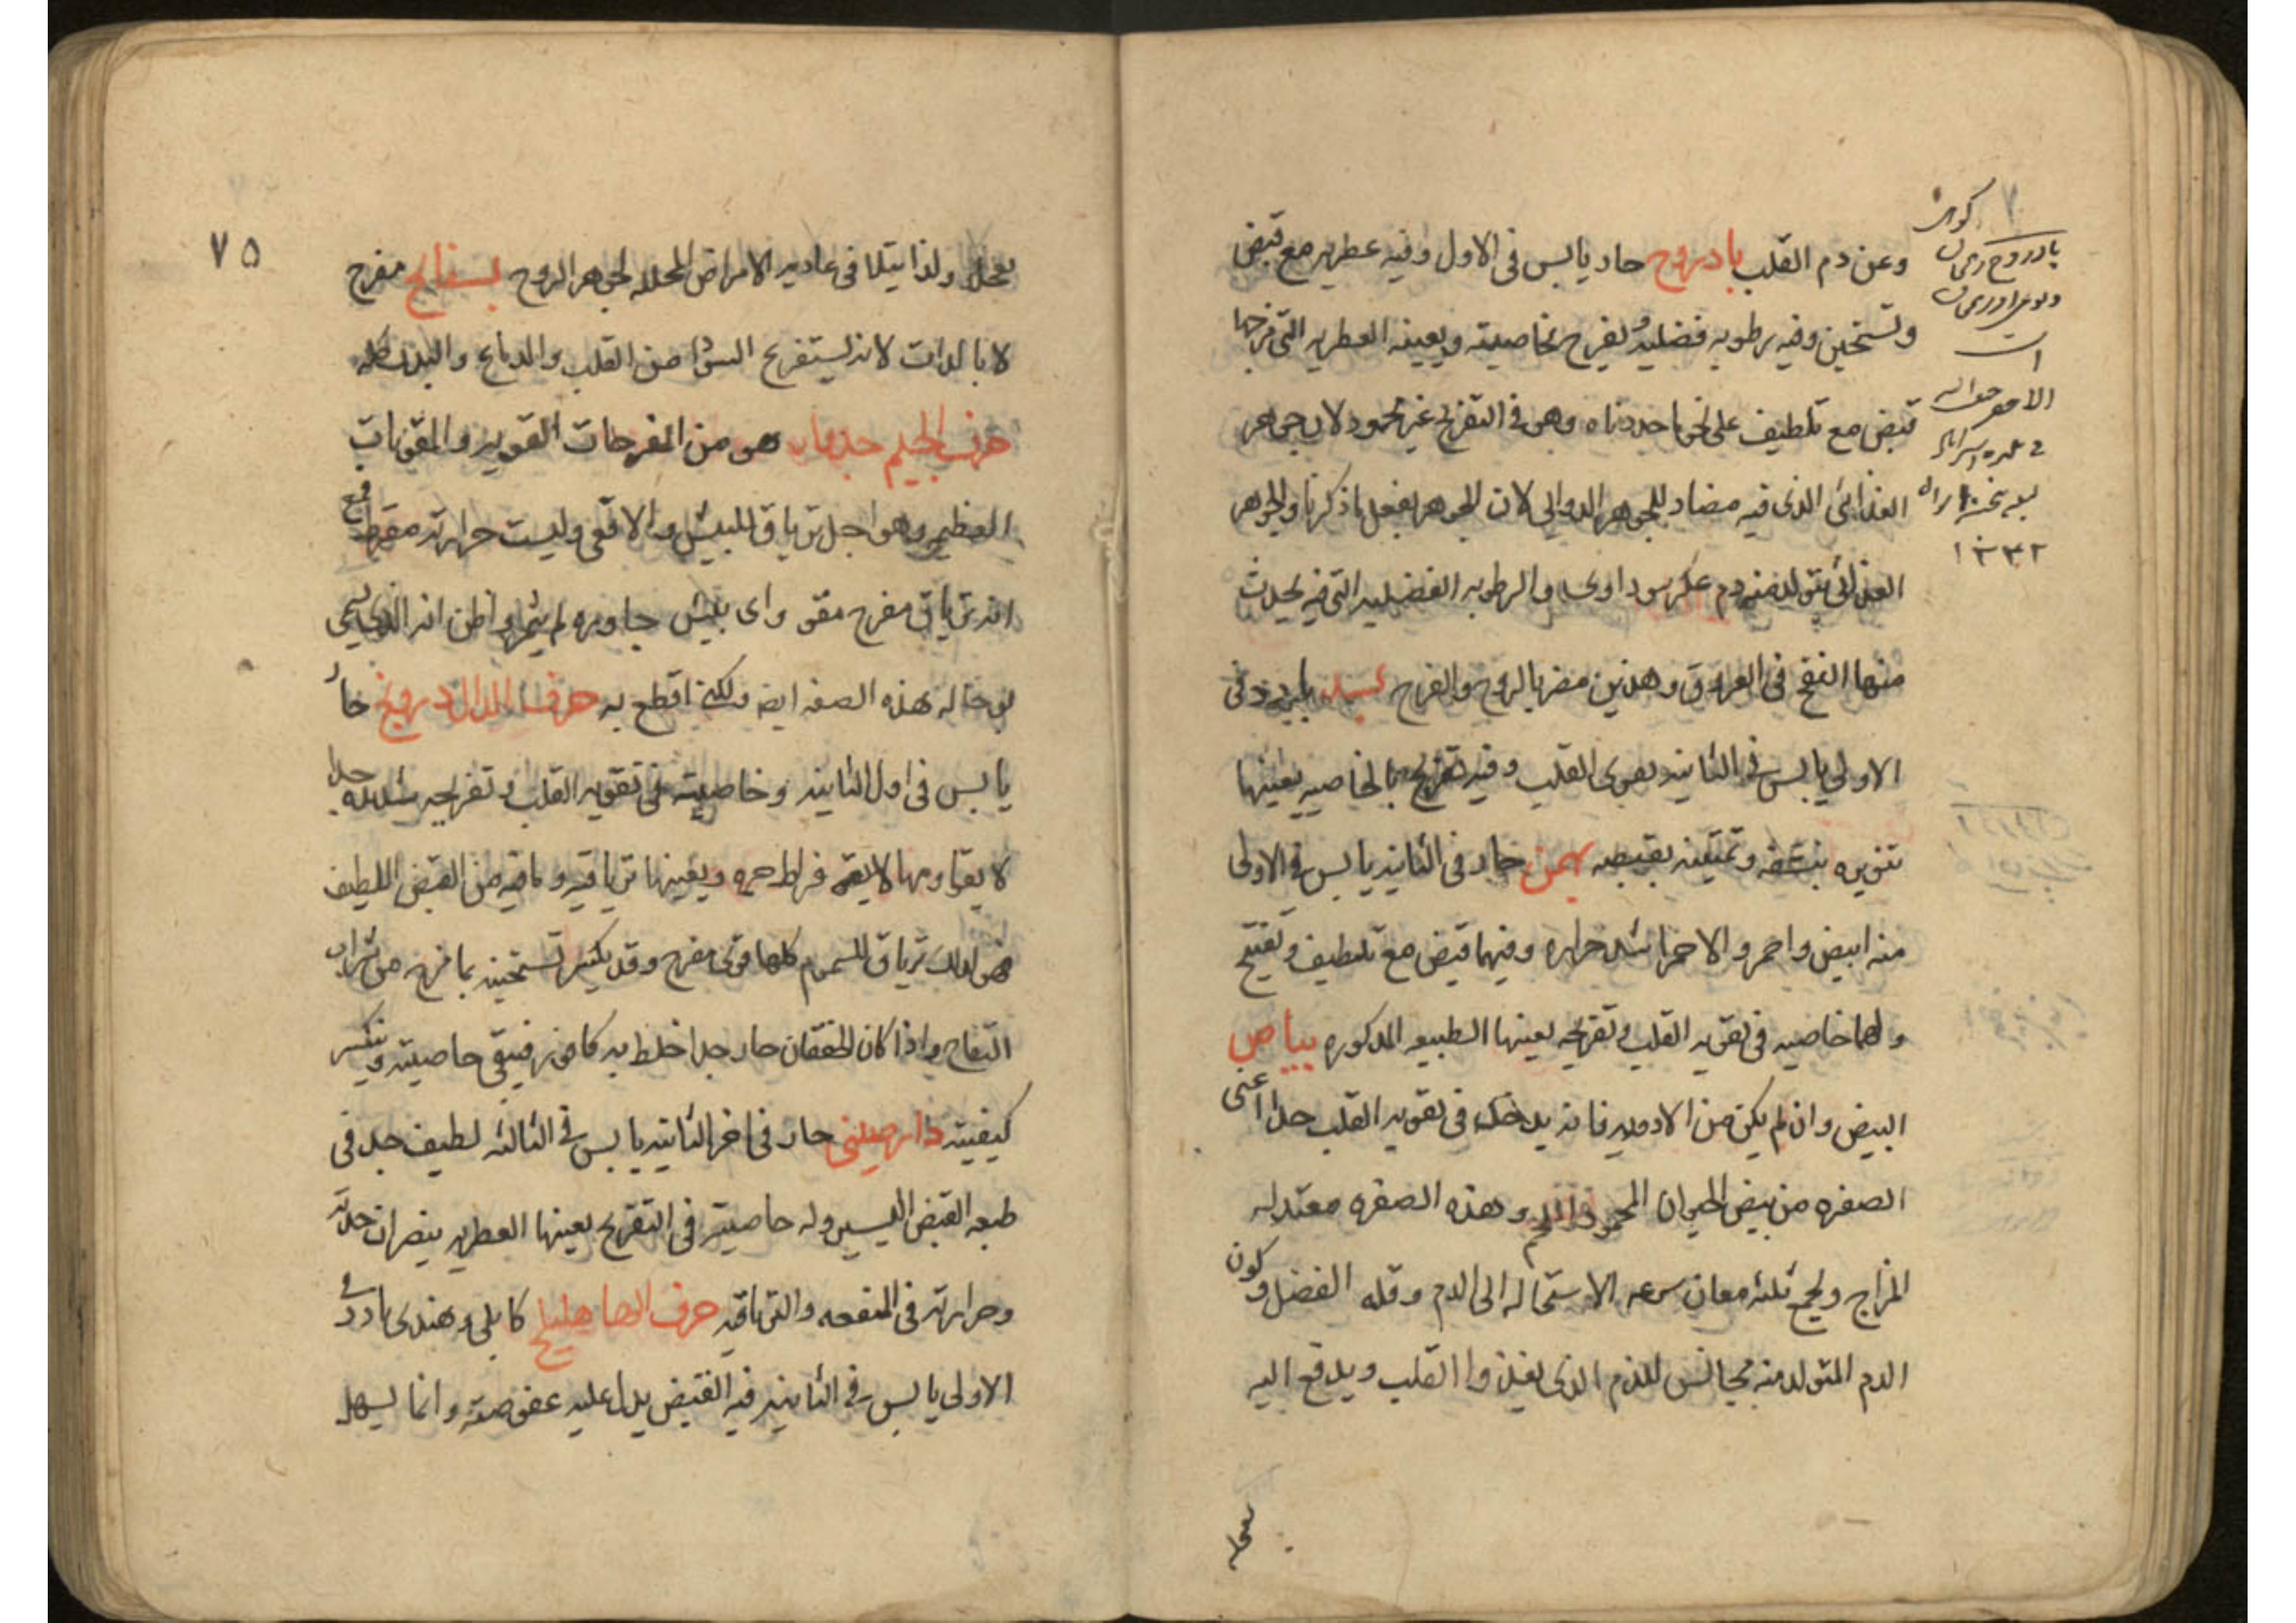 وعن دم القلب بادروج حار يابس في الاول وفيه عطريه مع قبض
وتسخين وفيه رطوبه فضليه ويفرح بخاصيته ويعينه العطريه التي مزجها
قبض مع تلطيف على نحو ما حددناه وهو في التفريح غير محمود لان جوهر
الغذائي الذي فيه مضاد للجوهر الدوائي لان الجوهر يفعل ماذكرنا والجوهر
الغذائي يتولد منه دم عكر سوداوي والرطوبه الفضليه التي فيه يحدث
منها النفخ في العروق وهذين مضر بالروح والفرح بسد بارد في
الاولى يابس في الثانيه يقوى القلب وفيه تفريح بالخاصيه يعينها
تنويره بنشفه وتمتينه بقبضه بهمن حار في الثانيه يابس في الاولى
منه ابيض واحمر والاحمر اشد حراره وفيهما قبض مع تلطيف وتفتيح
ولهما خاصيه في تقويه القلب وتفريحه يعينها الطبيعه المذكوره بياض
البيض وان لم يكن من الادويه فانه يدخل في تقويه القلب جدا اعنى
الصفره من بيض الحيوان المحمود اللحم وهذه الصفره معتدله
المزاج ويجمع ثلثه معان سرعه الاستحاله الى الدم وقله الفضل وكون
الدم المتولد منه مجانس للدم الذي يغذوا القلب ويدفع اليه
بادروج
١٣٣٢
٧٥
ولذا يتلافى عاديه الامراض المحلله لجوهر الروح بسفايج مفرح
لا بالذات لانه يستفرغ السودا من القلب والدماغ والبدن كله
حرف الجيم جدوار هو من المفرحات القويه والمقويات
العظيمه وهو اجل ترياق للبيش والافعى وليست حرارته مفرطه مع
انه ترياق مفرح مقو واى بيش جاوره لم يثمر واظن انه الذي يسمى
بوحا له هذه الصفه ايضا ولكني اقطع به حرف الدال درونج حار
يابس في اول الثانيه وخاصيته في تقويه القلب وتفريحه شديده جدا
لا يقاومها فراط حره ويعينها ترياقيه وما فيه من القبض اللطيف
فهو لذلك ترياق السموم كلها قوى مفرح وقد يكسر تسخينه بما مزج من شراب
التفاح واذا كان الخفقان حار جدا خلط به كافور فيبقى خاصيته وينكسر
كيفيته دارصيني حار في اخر الثانيه يابس في الثالثه لطيف جدا في
طبعه القبض اليسير وله خاصيته في التفريح يعينها العطريه
وحرارته في المنفعه والترياقيه حرف الها هليلج كابلي وهندي بارد في
الاولى يابس في الثانيه فيه القبض يدل عليه عفوصته وانما يسهل